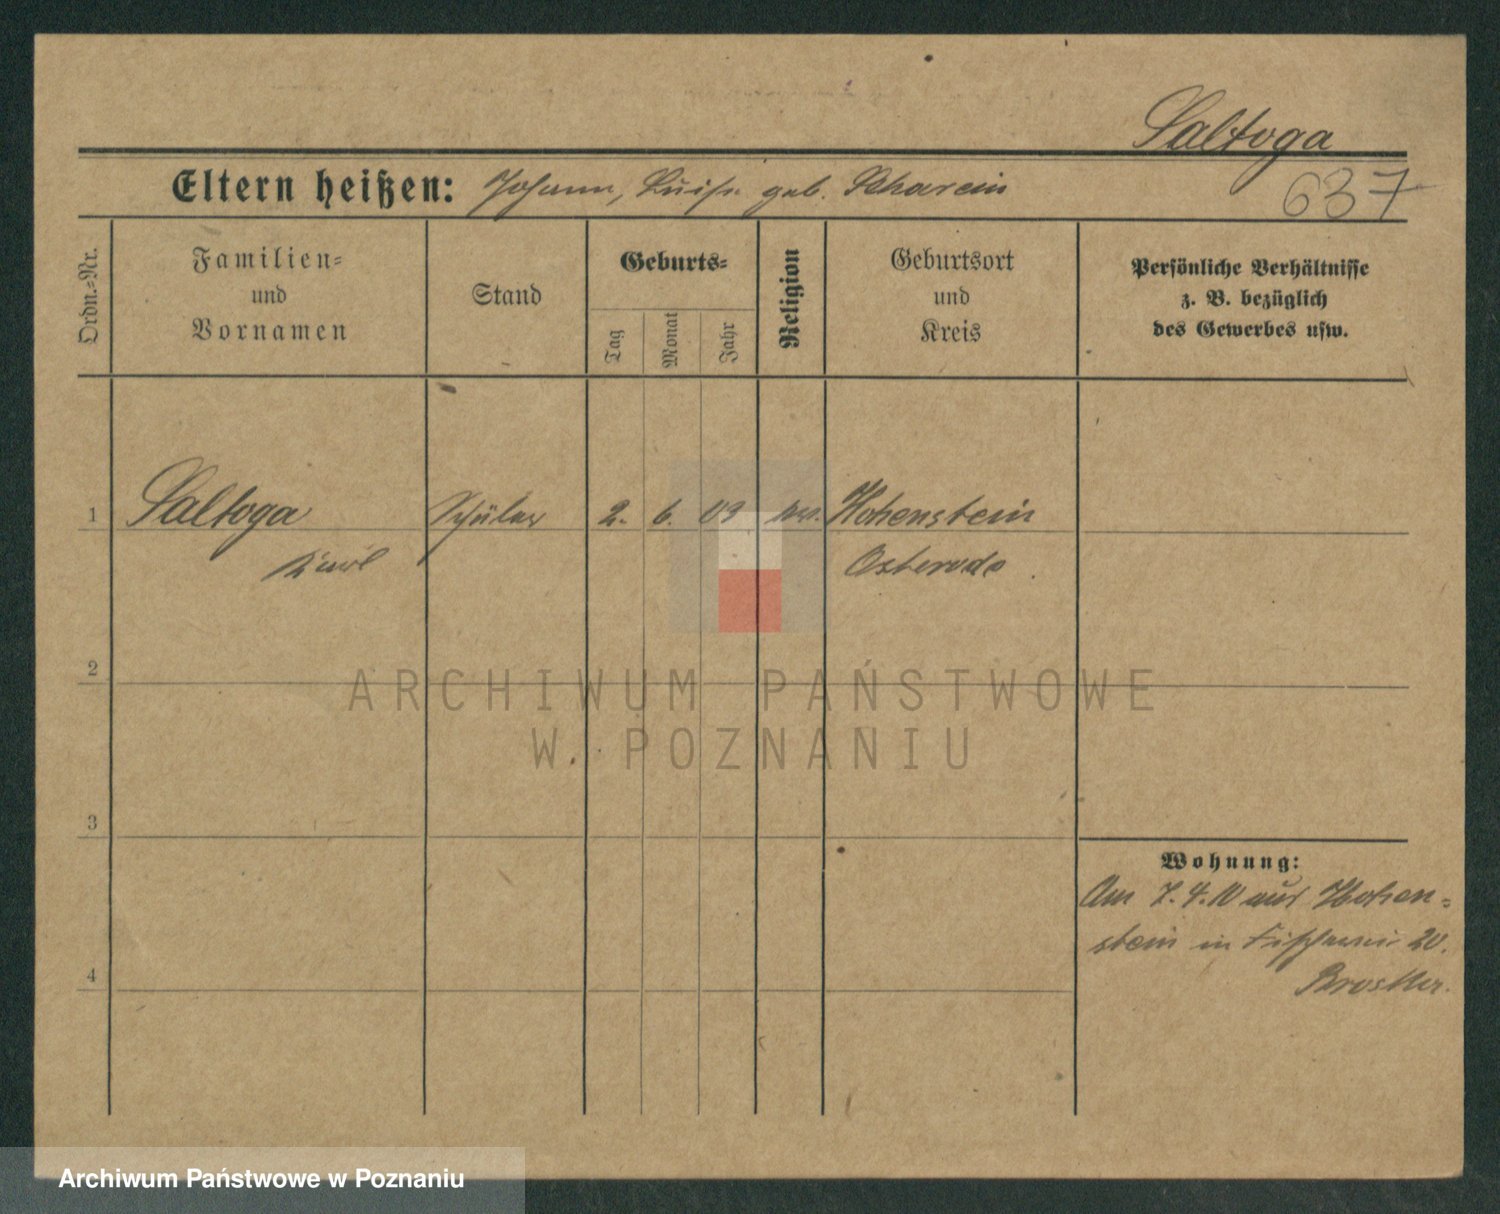 Saltoga
Eltern heißen: Johann, Luise geb.
637
Ordn.-Nr.
Familien-
und
Vornamen
Stand
Geburts-
Tag
Monat
Jahr
Religion
Geburtsort
und
Kreis
Persönliche Verhältnisse
z. B. bezüglich
des Gewerbes usw.
1 Saltoga Schüler 2. 6. 09 Hohenstein
Karl Osterode
2
3
4
Wohnung:
Am 7. 4. aus Hohen-
stein in Fischerei 20.
ARCHIWUM PAŃSTWOWE
W POZNANIU
Archiwum Państwowe w Poznaniu